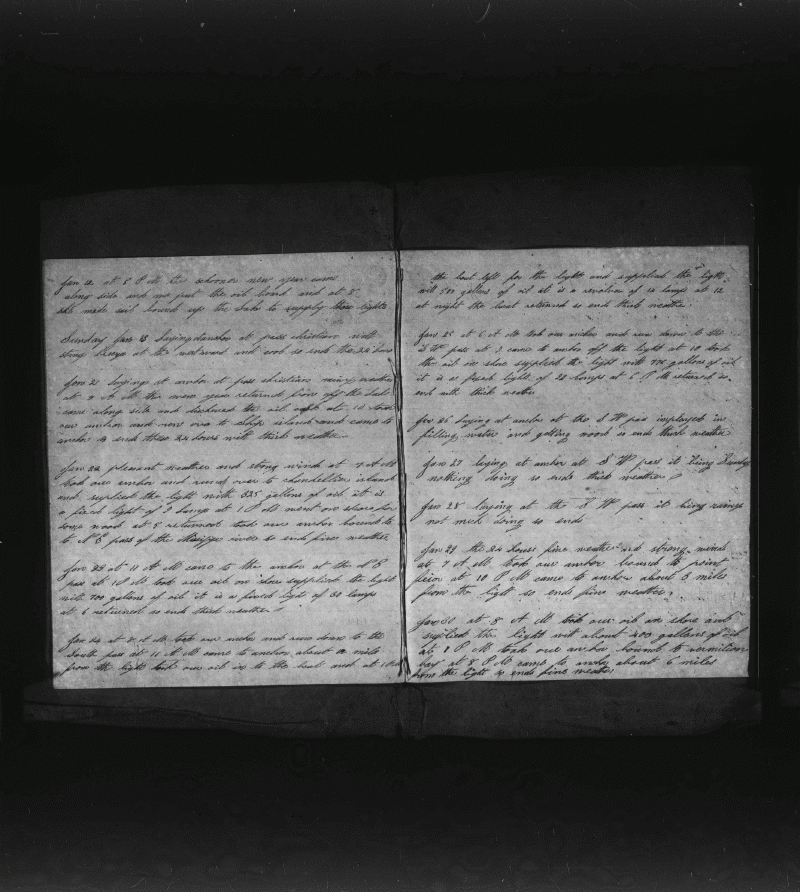 Jan 12 at 5 P M the schooner new year came
along side and we put the oil bord and at 8
she made sail bound up the lake to supply those lights
Sunday Jan 13 laying at anchor at pass christian with
strong at the westward and cool so end the 24 hours
Jan 21 laying at anchor at pass christian rainy weather
at 9 A M the new year returned from off the lake
came along side and discharged the oil at 10 took
our anchor and run over to ship island and came to
anchor so ends these 24 hours with thick weather
Jan 22 pleasent weather and strong wind at 7 A M
took our anchor and runed over to chandelier island
and suplied the light with 325 gallons of oil it is
a fixed light of 9 lamps at 1 P M went on shore for
some wood at 5 returned took our anchor bound to
to N E pass of the Missippi river so ends fine weather
Jan 23 at 11 A M came to the anchor at the N E
pas at 1 P M took our oil on shore supplied the light
with 700 gallons of oil it is a fixed light of 30 lamps
at 6 returned so ends thick weather
Jan 24 at 8 A M took our anchor and run down to the
South pass at 11 A M came to anchor about a mile
from the light took our oil in to the boat and at 1 P M
the boat left for the light and supplied the light
wit 550 gallons of oil it is a revolvin of 10 lamps at 12
at night the boat returned so ends thick weather
Jan 25 at 6 A M took our anchor and run down to the
S W pass at 9 came to anchor off the light at 10 took
the oil on shore supplied the light with 775 gallons of oil
it is a fixed light of 28 lamps at 6 P M returned so
ends with thick weather
Jan 26 laying at anchor at the S W pass imployed in
filling water and getting wood so ends thick weather
Jan 27 laying at anchor at S W pass it being Sunday
nothing doing so ends thick weather
Jan 28 laying at the S W pass it being rainy
not much doing so ends
Jan 29 the 24 hours fine weather and strong winds
at 7 A M took our anchor bound to point
at 10 P M came to anchor about 5 miles
from the light so ends fine weather
Jan 30 at 8 A M took our oil on shore and
suplied the light with about 400 gallons of oil
at 1 P M took our anchor bound to vermilion
bay at 8 P M came to anchor about 6 miles
from the light so ends fine weather